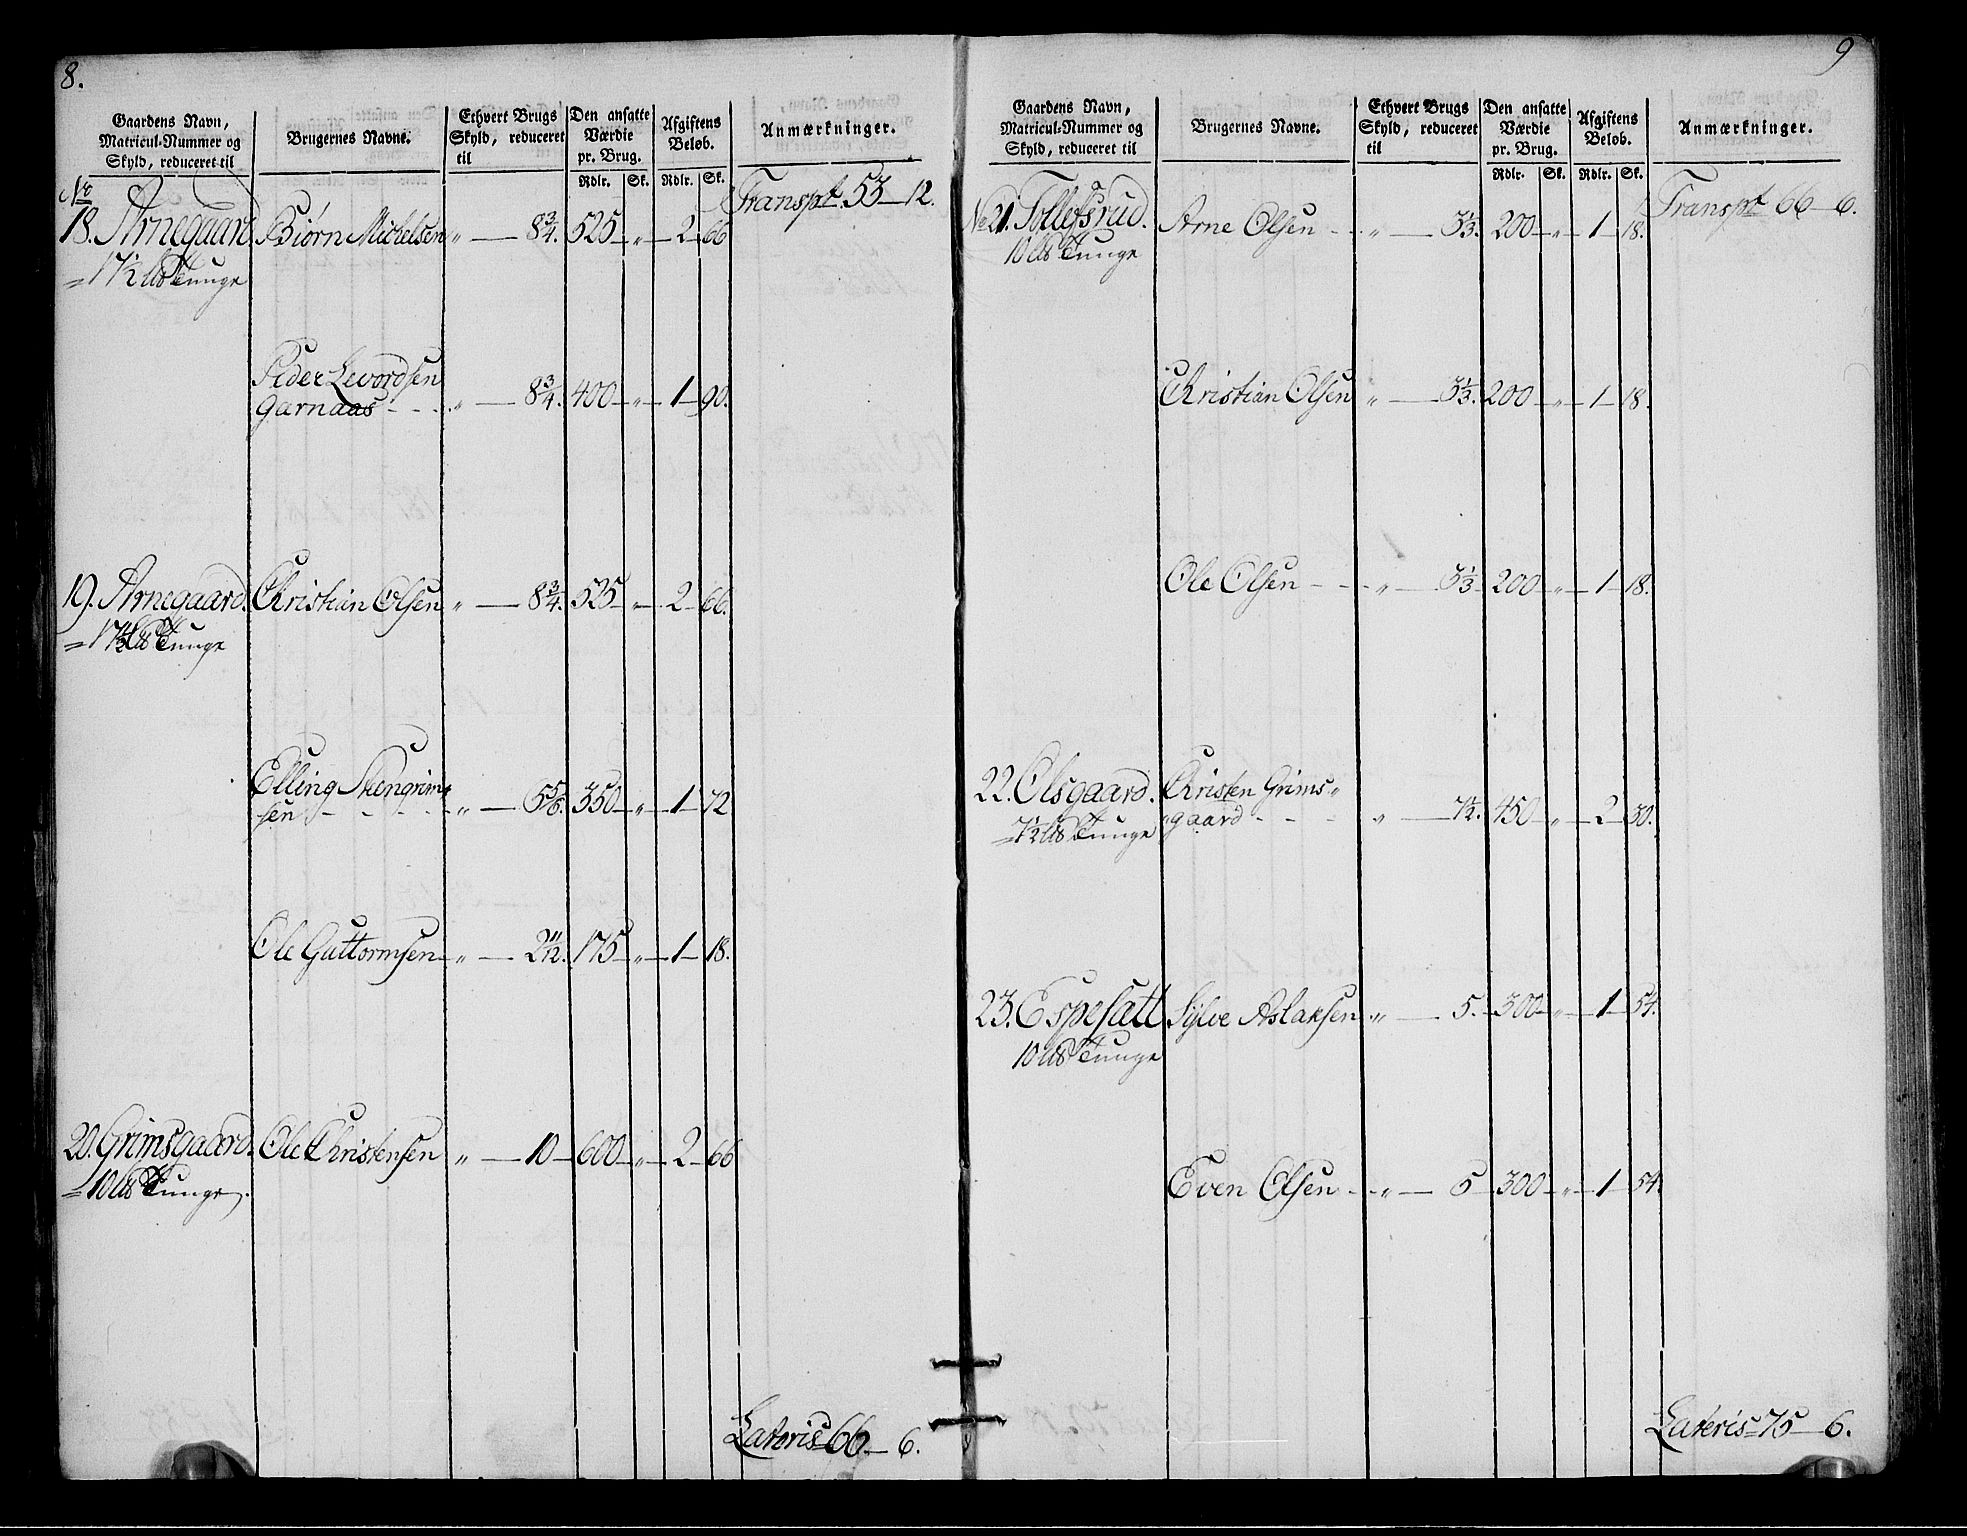 8.
Gaardens Navn, Matricul-Nummer og Skyld, reduceret til | Brugernes Navne. | Ethvert Brugs Skyld, reduceret til | Den ansatte Værdie pr. Brug. Rdlr. Sk. | Afgiftens Beløb. Rdlr. Sk. | Anmærkninger.
Transpt. 53 — 12.
No
18. Arnegaard Biørn Michelsen „ — 8 3/4. 525 — „ — 2 — 66
= 17 1/2 Lb Tunge
Peder Levordsen
Garnaas - - - „ — 8 3/4. 400 — „ — 1 — 90.
19. Arnegaard. Christian Olsen „ — 8 3/4. 525 — „ — 2 — 66.
= 17 1/2 Lb Tunge
Elling Stengrim„
sen - - - - „ — 5 5/6. 350 — „ — 1 — 72
Ole Guttormsen „ — 2 11/12. 175 — „ — 1 — 18.
20. Grimsgaard. Ole Christensen „ — 10 — 600 — „ — 2 — 66
= 10 Lb Tunge.
Lateris = 66 — 6.
9
Gaardens Navn, Matricul-Nummer og Skyld, reduceret til | Brugernes Navne. | Ethvert Brugs Skyld, reduceret til | Den ansatte Værdie pr. Brug. Rdlr. Sk. | Afgiftens Beløb. Rdlr. Sk. | Anmærkninger.
Transpt 66 — 6.
No 21. Tollefsrud. Arne Olsen - - „ — 3 1/3. 200 — „ — 1 — 18.
10 Lb Tunge
Christian Olsen „ — 3 1/3. 200 — „ — 1 — 18.
Ole Olsen - - - „ — 3 1/3 200 — „ — 1 — 18.
22. Olsgaard. Christen Grims„
= 7 1/2 Lb Tunge „gaard - - - „ — 7 1/2. 450 — „ — 2 — 30.
23. Espesætt Sylve Aslaksen „ — 5. 300 — „ — 1 — 54.
10 Lb Tunge
Even Olsen - - „ — 5 — 300 — „ — 1 — 54.
Lateris = 75 — 6.